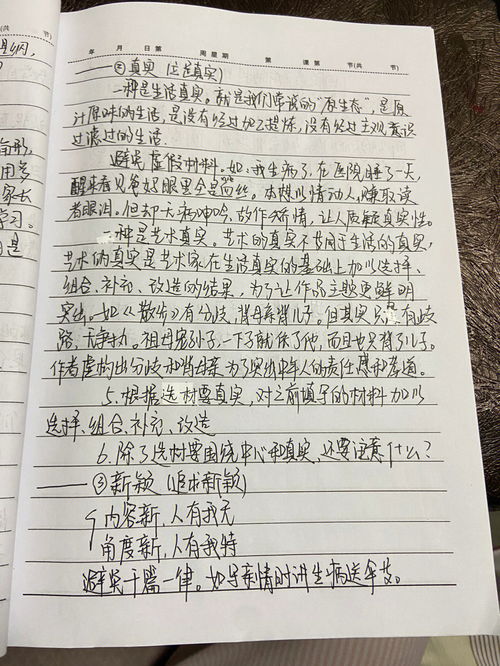 年 月 日 第 周 星期 第 课 第 节(共 节)
——②真实(注意真实)
一种是生活真实。就是我们常说的"原生态",是原
汁原味的生活,是没有经过加工提炼,没有经过主观意识
过滤过的生活.
避免虚假材料。如:我生病了,在医院睡了一天,
醒来看见爸妈眼里全是血丝。本想以情动人,赚取读
者眼泪。但却无病呻吟,故作矫情,让人质疑真实性。
一种是艺术真实。艺术的真实不等同于生活的真实,
艺术的真实是艺术家在生活真实的基础上加以选择、
组合、补充、改造的结果,为了让作品主题更鲜明
突出。如《散步》有分歧,背母亲背儿子。但其实只是有歧
路,无争执。祖母宠孙子,一下了就依了他,而且也只背了儿子。
作者虚构出分歧和背母亲,为了突出中年人的责任感和孝道。
5.根据选材要真实,对之前填写的材料加以
选择、组合、补充、改造
6.除了选材要围绕中心和真实,还要注意什么?
——③新颖(追求新颖)
内容新,人有我无
角度新,人有我特
避免千篇一律。如写亲情时讲生病送伞等。
用号
家长
学习。